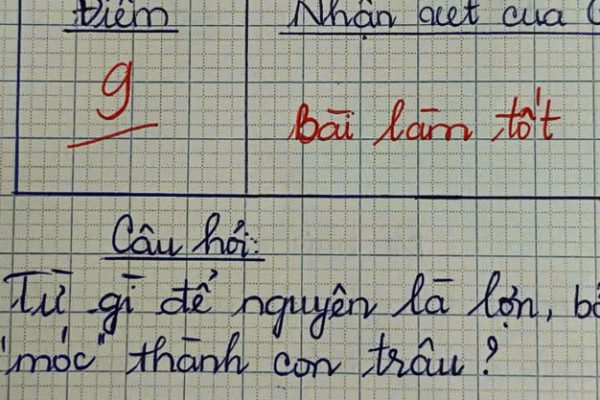 Điểm
Nhận xét của
9
Bài làm tốt
Câu hỏi:
Từ gì để nguyên là lợn,
"móc" thành con trâu?